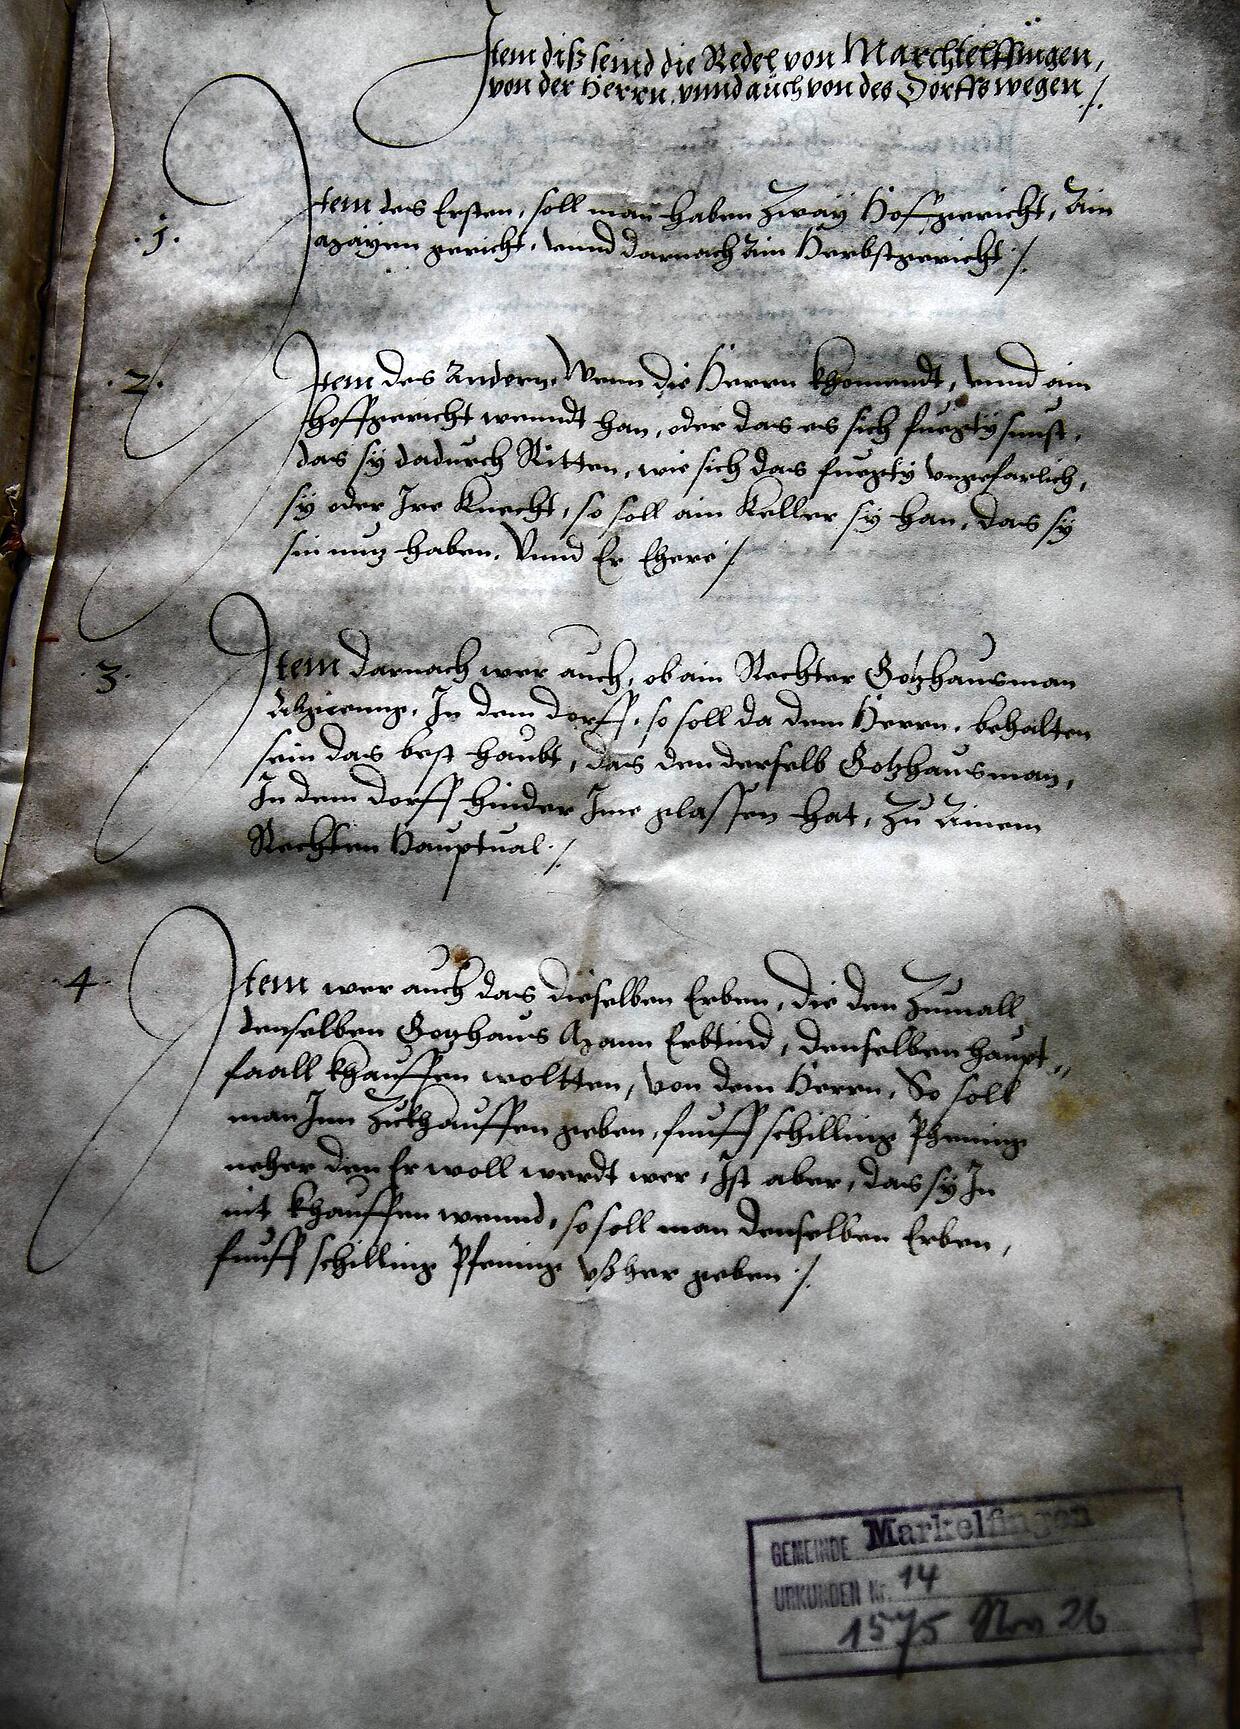 Item diß seind die Redel von Marchtelffingen,
von der Herrn, vnnd auch von des Dorffs wegen ./.
.1.
Item des Ersten, soll man haben Zway Hoffgericht, Ain
Mayen gericht, vnnd darnach Ain Herbstgericht ./.
.2.
Item des Andern, Wenn die Herrn khomendt, vnnd ain
Hoffgericht wenndt han, oder das es sich fuegty sunst,
das sy dadurch Ritten, wie sich das fuegty vngefarlich,
sy oder Ire Knecht, so soll ain Keller sy han, das sy
sin nutz haben, Vnnd Er Ehere ./.
.3.
Item darnach wer auch, ob ain Rechter Gotzhausman
Abgienng, In dem dorff, so soll da dem Herrn, behalten
sein das best haubt, das den derselb Gotzhausman,
In dem dorff hinder Ime glassen hat, Zu Ainem
Rechten Hauptual ./.
.4.
Item wer auch das dieselben Erben, die den Zumall
denselben Gotzhaus Mann Erbtind, denselben haupt„
faall khauffen woltten, von dem Herrn, So soll
man Inn Zukhauffen geben, funff schilling Pfening
neher den Er woll werdt wer, Ist aber, das sy In
nit khauffen wennd, so soll man denselben Erben,
funff schilling Pfening vßher geben ./.
GEMEINDE Markelfingen
URKUNDEN Nr. 14
1575 Nov 26